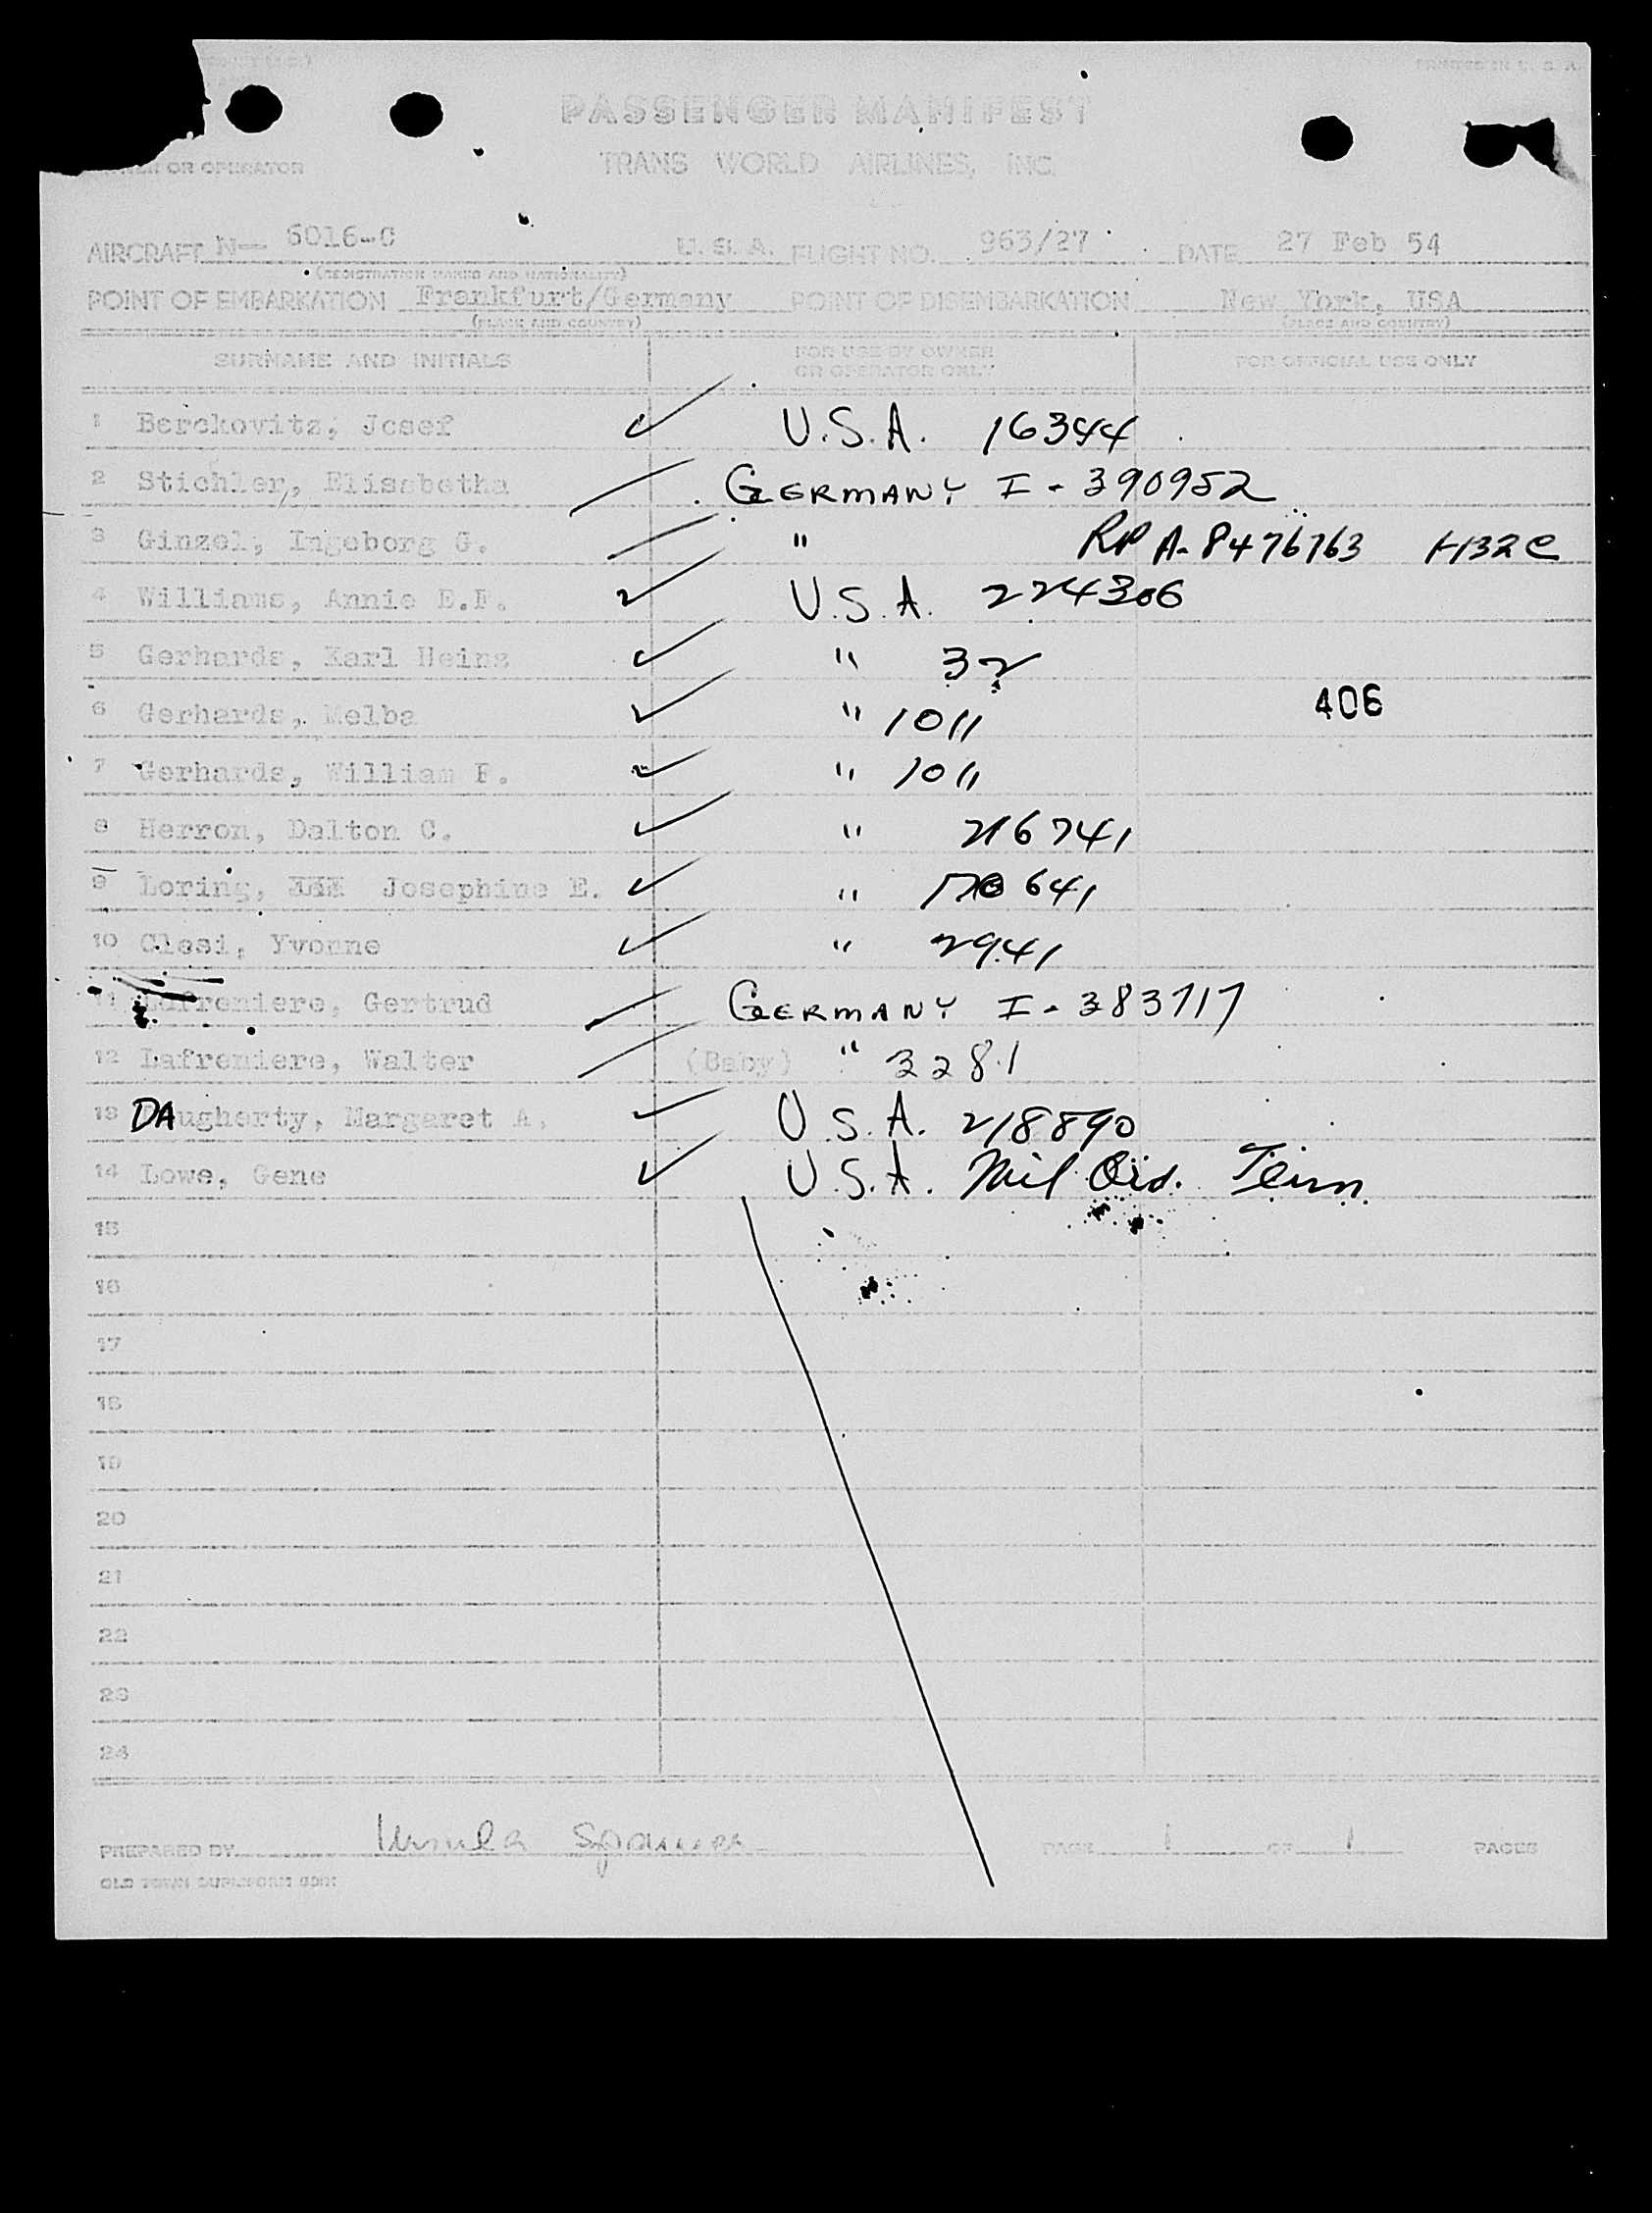 PRINTED IN U. S. A.
PASSENGER MANIFEST
OR OPERATOR TRANS WORLD AIRLINES, INC.
AIRCRAFT N— 6016-C U. S. A. FLIGHT NO. 963/27 DATE 27 Feb 54
(REGISTRATION MARKS AND NATIONALITY)
POINT OF EMBARKATION Frankfurt/Germany POINT OF DISEMBARKATION New York, USA
(PLACE AND COUNTRY) (PLACE AND COUNTRY)
SURNAME AND INITIALS FOR USE BY OWNER OR OPERATOR ONLY FOR OFFICIAL USE ONLY
1 Berckovitz, Josef ✓ U.S.A. 16344
2 Stichler, Elisabetha GERMANY I-390952
3 Ginzel, Ingeborg G. " RP A-8476763
4 Williams, Annie E.F. ✓ U.S.A. 224306
5 Gerhards, Karl Heinz ✓ " 32
6 Gerhards, Melba ✓ " 1011 406
7 Gerhards, William F. ✓ " 1011
8 Herron, Dalton C. ✓ " 216741
9 Loring, Josephine E. ✓ " 641
10 Clesi, Yvonne ✓ " 2941
11 Lafreniere, Gertrud GERMANY I-383717
12 Lafreniere, Walter (Baby) " 3281
13 DAugherty, Margaret A. ✓ U.S.A. 218890
14 Lowe, Gene ✓ U.S.A. Mil Ord. Term.
15
16
17
18
19
20
21
22
23
24
PREPARED BY Ursula PAGE 1 OF 1 PAGES
OLD TOWN